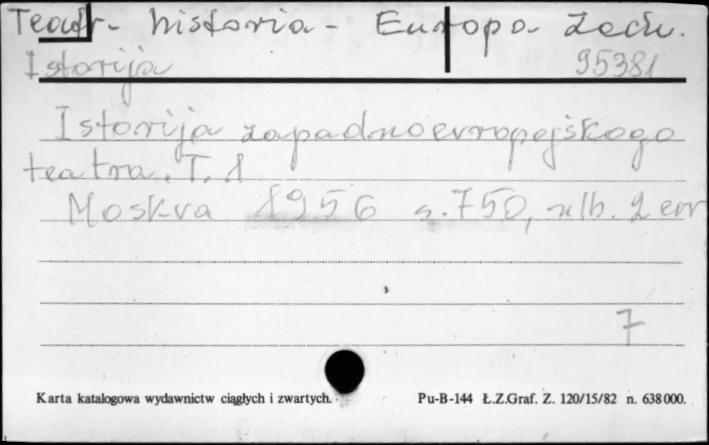 Teatr - historia - Europa Zach.
Istorija 95381
Istorija zapadnoevropejskogo
teatra. T. 1
Moskva 1956 s. 750, nlb. 2 err
7
Karta katalogowa wydawnictw ciągłych i zwartych. Pu-B-144 Ł.Z.Graf. Z. 120/15/82 n. 638000.